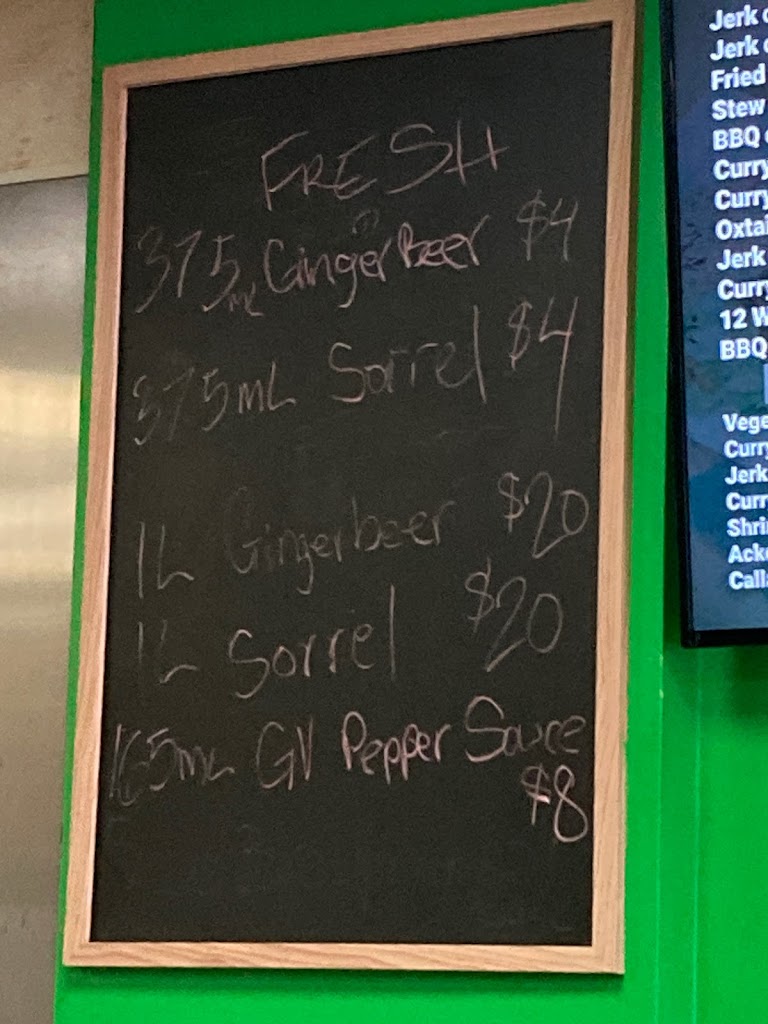 FRESH
375mL Ginger Beer $4
375mL Sorrel $4
1L Gingerbeer $20
1L Sorrel $20
165mL GV Pepper Sauce
$8
Jerk
Jerk
Fried
Stew
BBQ
Curry
Curry
Oxtai
Jerk
Curry
12 W
BBQ
Vege
Curry
Jerk
Curr
Shri
Acke
Call